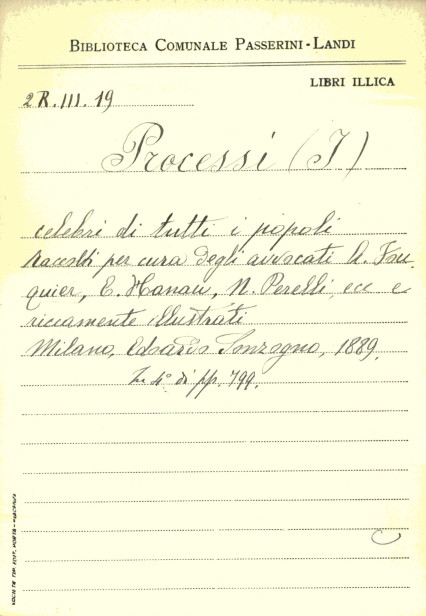 BIBLIOTECA COMUNALE PASSERINI-LANDI
LIBRI ILLICA
2R.III.19
Processi (I)
celebri di tutti i popoli
raccolti per cura degli avvocati A. Fou-
quier, E. Hanau, N. Perelli, ecc e
riccamente illustrati
Milano, Edoardo Sonzogno, 1889.
In 4° di pp. 799.